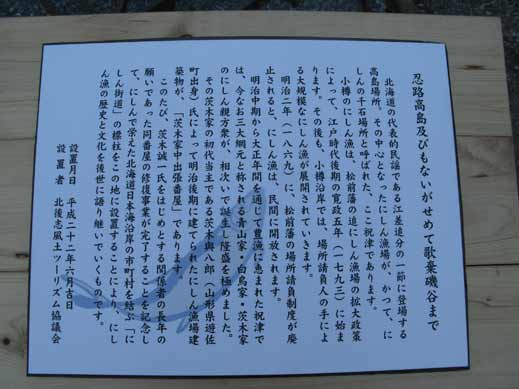 忍路高島及びもないがせめて歌棄磯谷まで
北海道の代表的民謡である江差追分の一節に登場する
高島場所、その中心となったにしん漁場が、かつて、に
しんの千石場所と呼ばれた、ここ祝津であります。
小樽のにしん漁は、松前藩の追にしん漁場の拡大政策
によって、江戸時代後期の寛政五年（一七九三）に始ま
ります。その後も、小樽沿岸では、場所請負人の手によ
る大規模なにしん漁が展開されていきます。
明治二年（一八六九）に、松前藩の場所請負制度が廃
止されると、にしん漁は、民間に開放されます。
明治中期から大正年間を通じて豊漁に恵まれた祝津で
は、今なお三大網元と称される青山家・白鳥家・茨木家
のにしん親方衆が、相次いで誕生し隆盛を極めました。
その茨木家の初代当主である茨木與八郎（山形県遊佐
町出身）氏によって明治後期に建てられたにしん漁場建
築物が、「茨木家中出張番屋」であります。
このたび、茨木誠一氏をはじめとする関係者の長年の
願いであった同番屋の修復事業が完了することを記念し
て、にしんで栄えた北海道日本海沿岸の市町村を結ぶ「に
しん街道」の標柱をこの地に設置することにより、にし
ん漁の歴史と文化を後世に語り継いでいくものです。
設置月日　平成二十二年六月吉日
設置者　北後志風土ツーリズム協議会